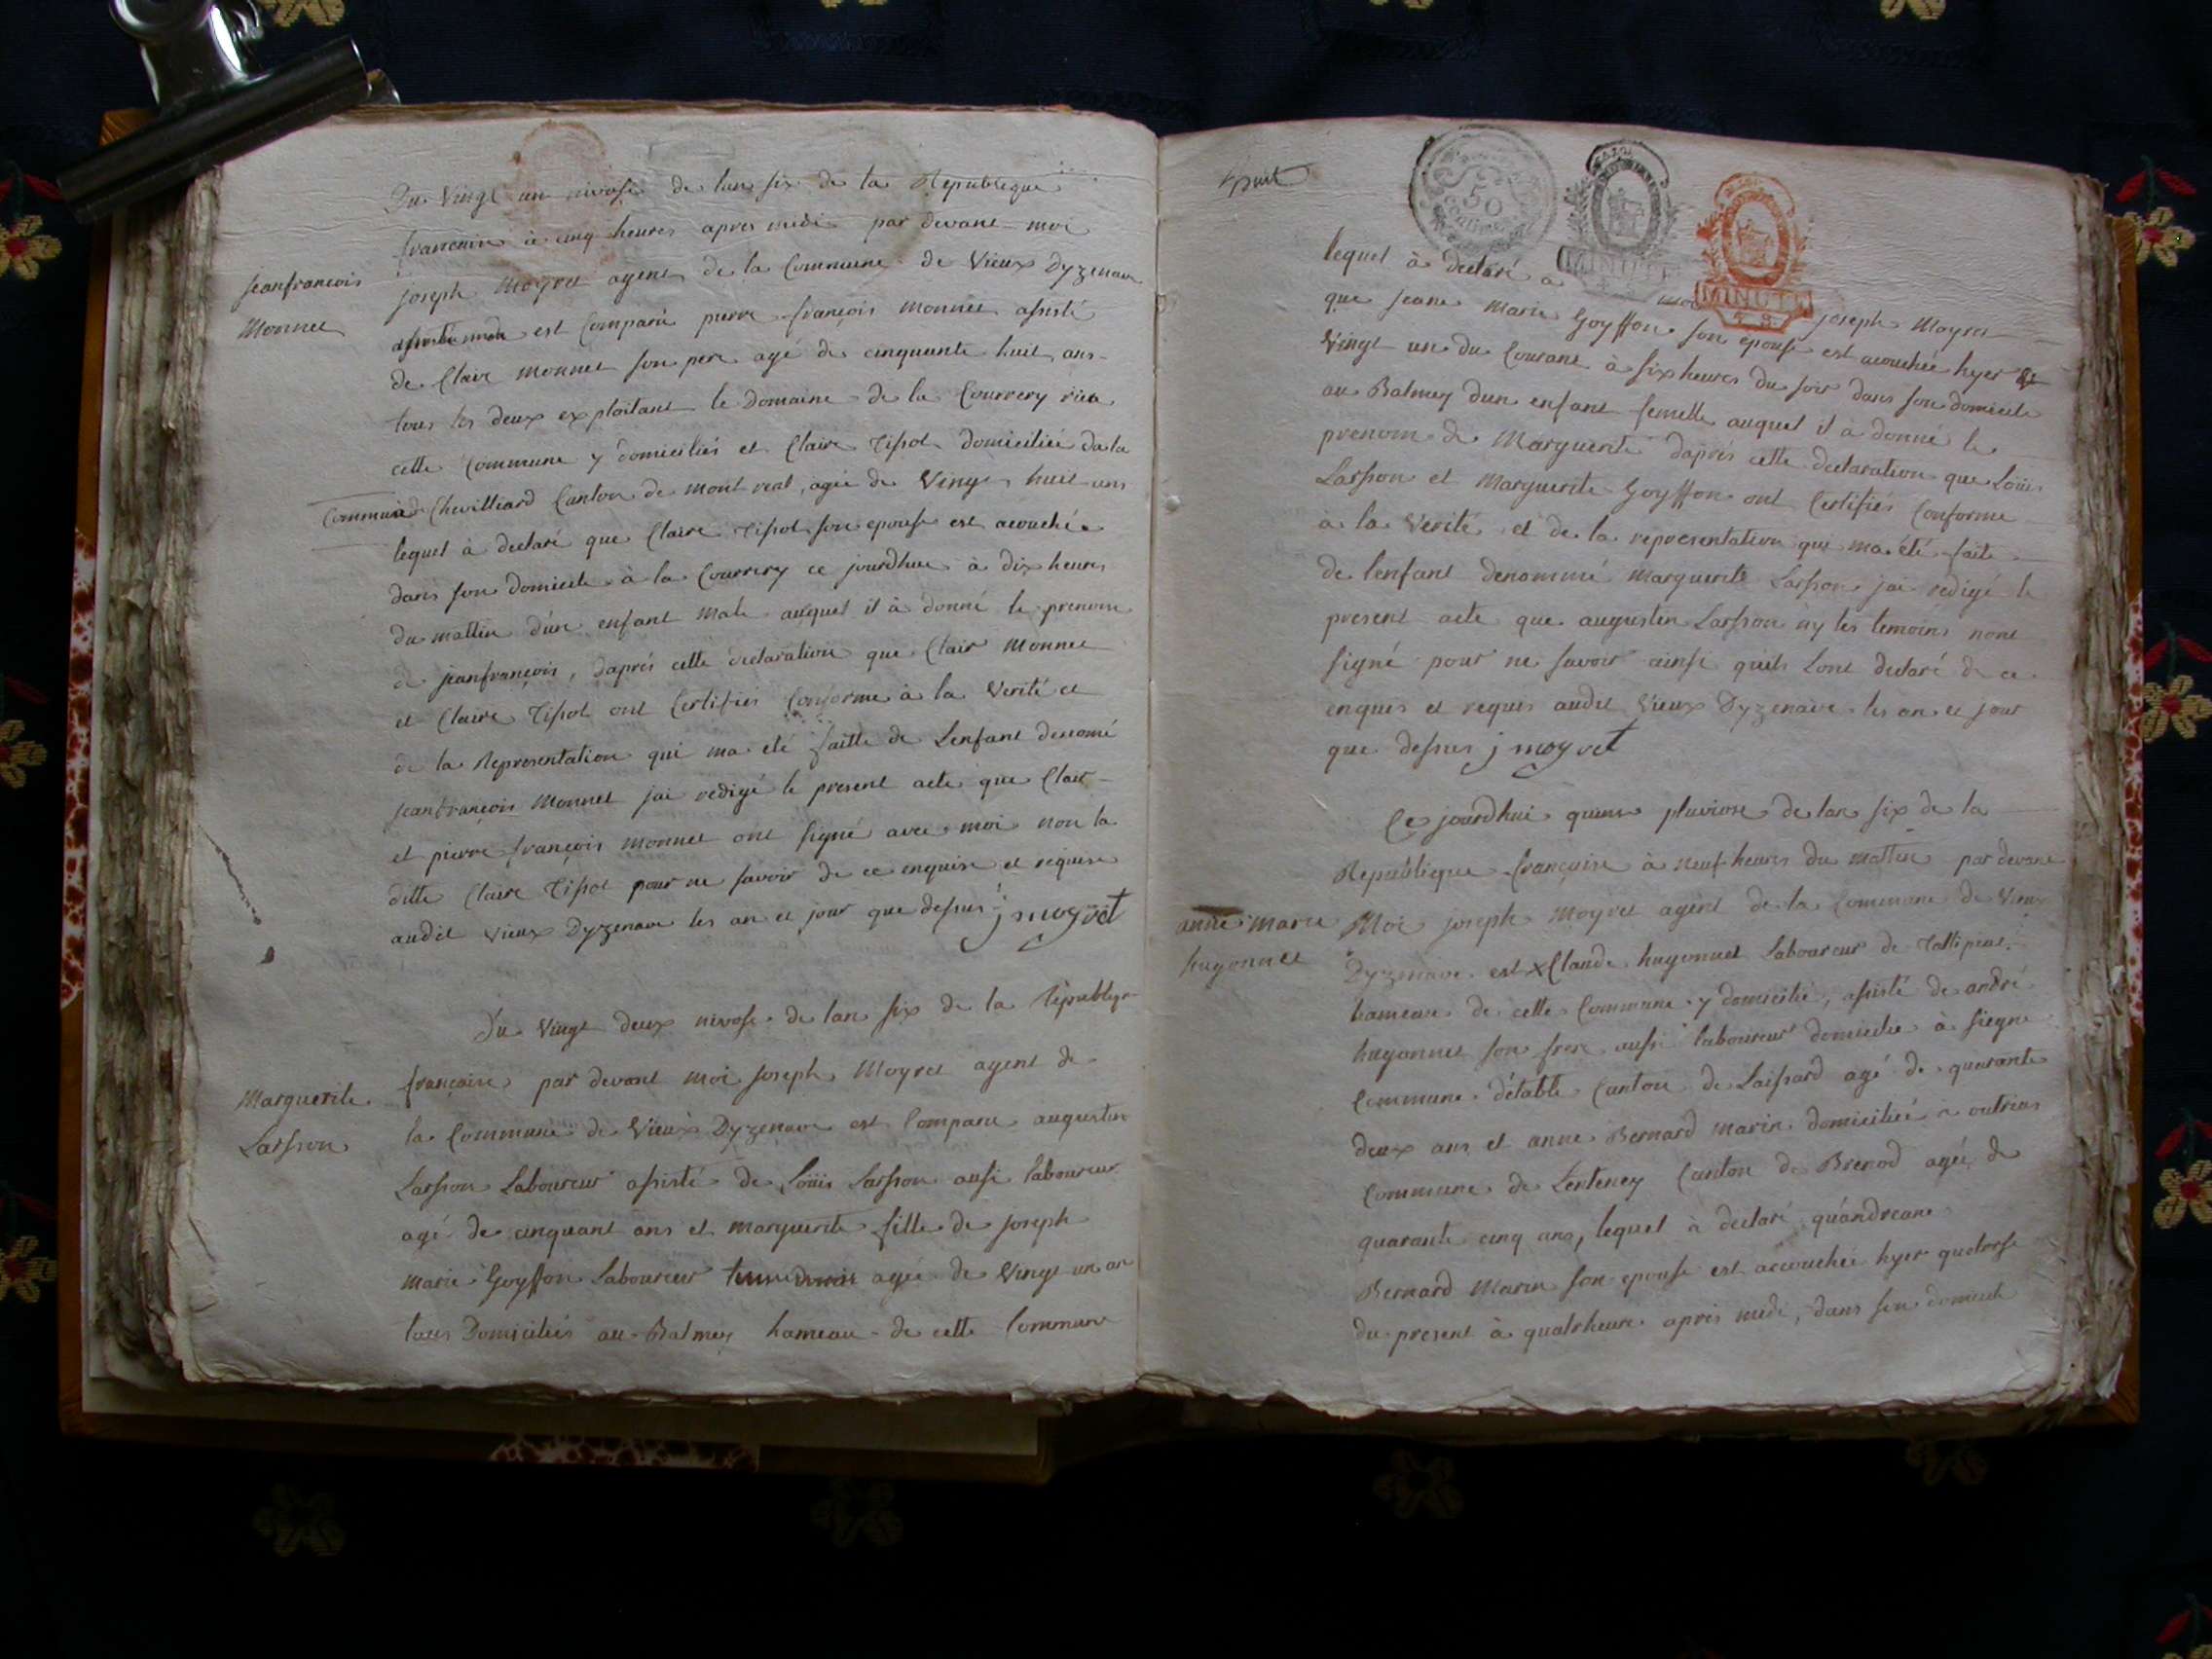 Du Vingt un nivose de lan six de la Republique
francaise à cinq heures apres midi par devant moi
jeanfrancois
Monnet
joseph Moyret agent de la Commune de Vieux Dyzenave
est Comparu pierre françois Monnet assisté
de Clair Monnet son pere agé de cinquante huit ans
tous les deux exploitant le domaine de la Courrery
cette Commune y domiciliés et Claire Tissot domiciliée
Commune de Chevilliard Canton de Mont real, agée de Vingt huit ans
lequel à declaré que Claire Tissot son epouse est acouchée
dans son domicile à la Courrery ce jourdhui à dix heures
du mattin d'un enfant male auquel il à donné le prenom
de jeanfrançois, daprés cette declaration que Clair Monnet
et Claire Tissot ont Certifiés Conforme à la Verité et
de la Representation qui ma eté faitte de Lenfant denomé
jeanfrançois Monnet jai redigé le present acte que Clair
et pierre françois Monnet ont signé avec moi non la
ditte Claire Tissot pour ne savoir de ce enquise et requise
audit Vieux Dyzenave les an et jour que dessus j moyret
Du Vingt deux nivose de lan six de la Republiqe
Marguerite
Larsson
françaisse par devant moi joseph Moyret agent de
la Commune de Vieux Dyzenave est Comparu augustin
Larsson Laboureur assisté de Loüis Larsson aussi laboureur
agé de cinquant ans et marguerite fille de joseph
marie Goyffon Laboureur agée de Vingt un an
tous Domiciliés au Balmey hameau de cette Commune
lequel à declaré a moi joseph Moyret
que jeane Marie Goyffon son epouse est acouchée hyer
Vingt un du Courant à six heures du soir dans son domicile
au Balmey dun enfant femelle auquel il à donné le
prenom de Marguerite daprés cette declaration que Loüis
Larsson et Marguerite Goyffon ont Certifiés Conforme
à la Verité et de la representation qui ma été faite
de lenfant denommé Marguerite Larsson jai redigé le
present acte que augustin Larsson ny les temoins nont
signé pour ne savoir ainsi quils Lont declaré de ce
enquis et requis audit Vieux Dyzenave les an et jour
que dessus j moyret
Ce jourdhui quinse pluviose de lan six de la
Republique françaisse à neuf heures du mattin par devant
anne marie
hugonnet
Moi joseph Moyret agent de la Commune de Vieux
Dyzenave est Claude hugonnet Laboureur de
hameau de cette Commune y domicilié, assisté de andré
hugonnet son frere aussi laboureur domicilié à
Commune détable Canton de agé de quarante
deux ans et anne Bernard marin domiciliée à outriaz
Commune de Lenteney Canton de Brenod agée de
quarante cinq ans, lequel à declaré quándreane
Bernard Marin son epouse est accouchée hyer quatorse
du present à quatrheure aprés midi, dans son domicile
50
MINUTE
MINUTE